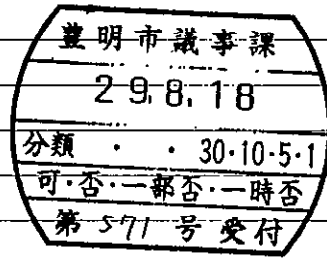 豊明市議事課
29.8.18
分類 ・ ・ 30・10・5・1
可・否・一部否・一時否
第 571 号 受付